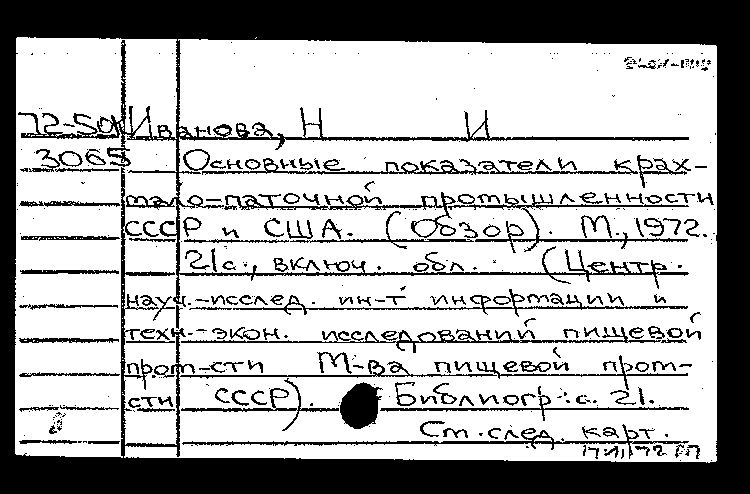 72-50 Иванова, Н И
3065 Основные показатели крах-
мало-паточной промышленности
СССР и США. (Обзор). М., 1972.
21с., включ. обл. (Центр.
науч.-исслед. ин-т информации и
техн.-экон. исследований пищевой
пром-сти М-ва пищевой пром-
сти СССР). Библиогр.: с. 21.
См. след. карт.